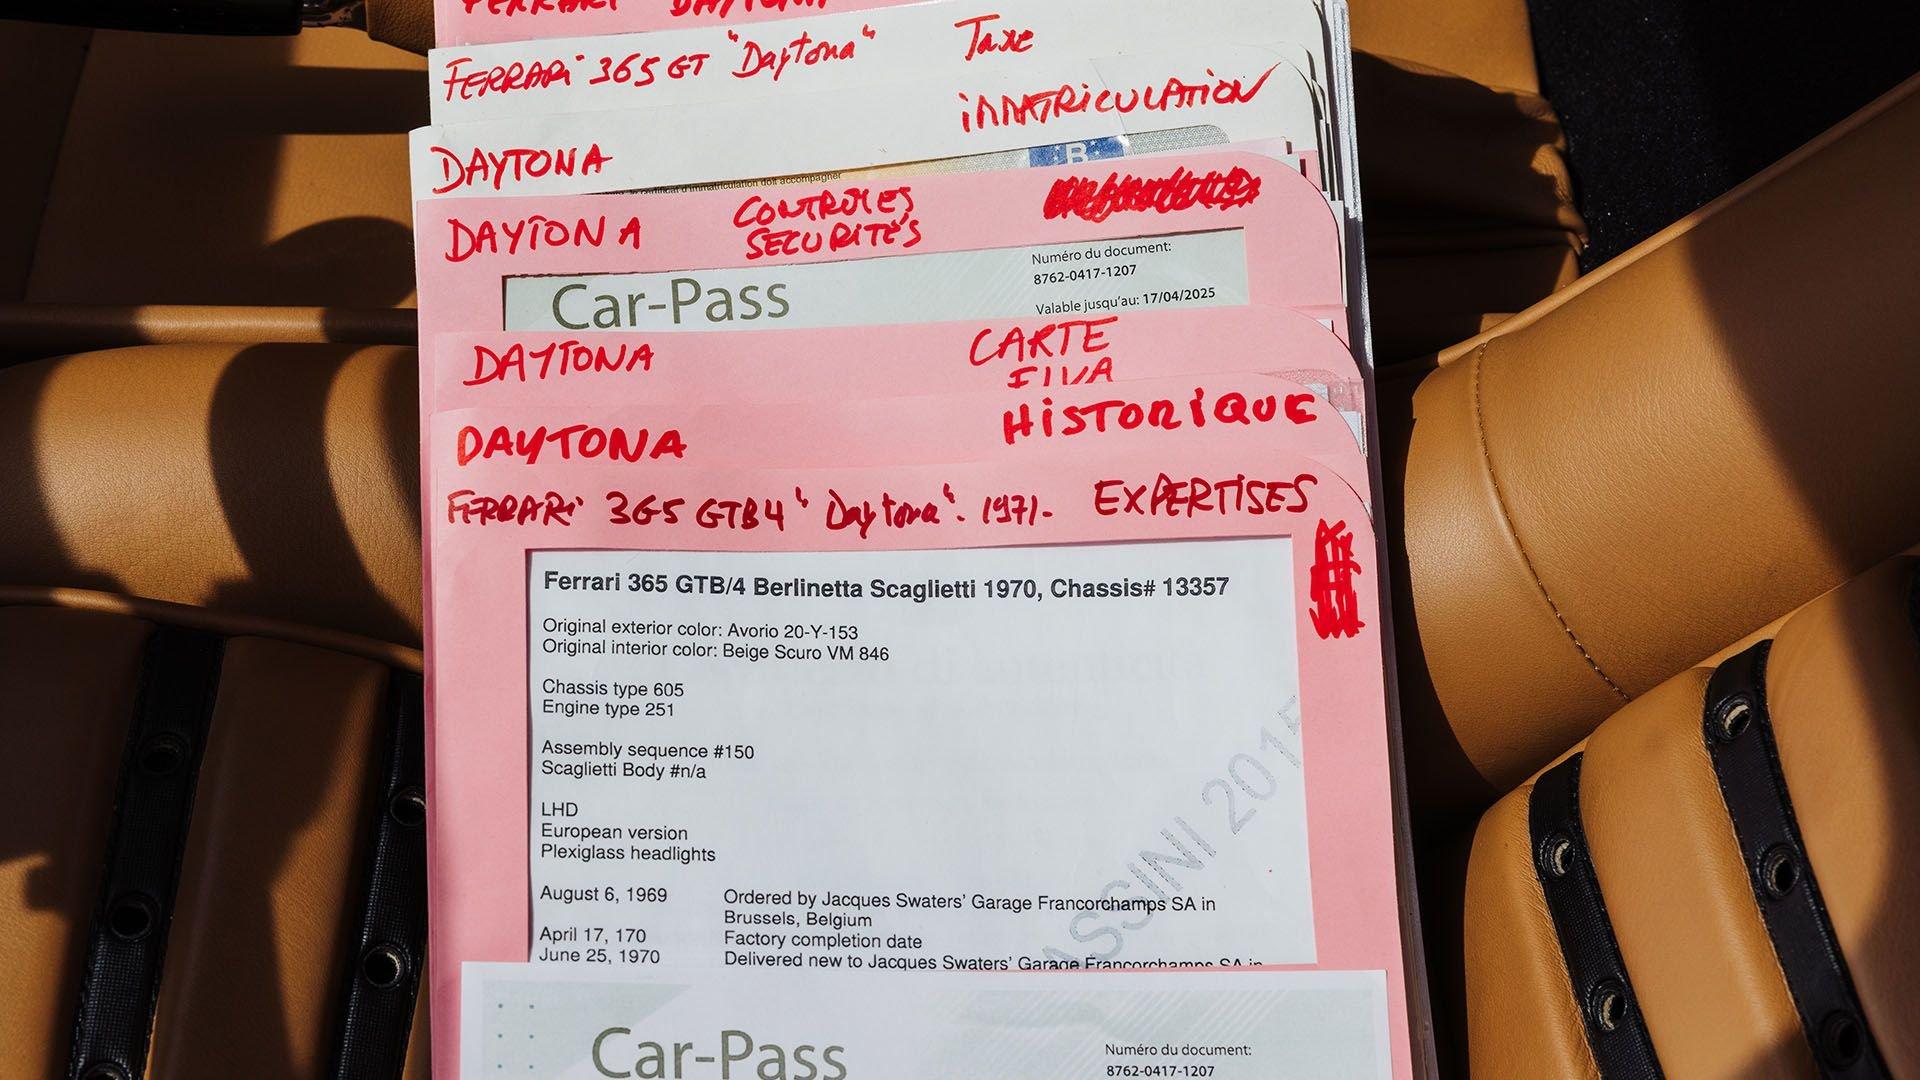 FERRARI DAYTONA
FERRARI 365 GT "Daytona" Taxe
IMMATRICULATION
DAYTONA
B
certificat d'immatriculation doit accompagner
DAYTONA CONTROLES
SECURITÉS
Car-Pass
Numéro du document:
8762-0417-1207
Valable jusqu'au: 17/04/2025
DAYTONA CARTE
FIVA
DAYTONA HISTORIQUE
FERRARI 365 GTB4 "Daytona". 1971- EXPERTISES
Ferrari 365 GTB/4 Berlinetta Scaglietti 1970, Chassis# 13357
Original exterior color: Avorio 20-Y-153
Original interior color: Beige Scuro VM 846
Chassis type 605
Engine type 251
Assembly sequence #150
Scaglietti Body #n/a
LHD
European version
Plexiglass headlights
August 6, 1969 Ordered by Jacques Swaters' Garage Francorchamps SA in
Brussels, Belgium
April 17, 170 Factory completion date
June 25, 1970 Delivered new to Jacques Swaters' Garage Francorchamps SA in
ASSINI 2015
Car-Pass
Numéro du document:
8762-0417-1207